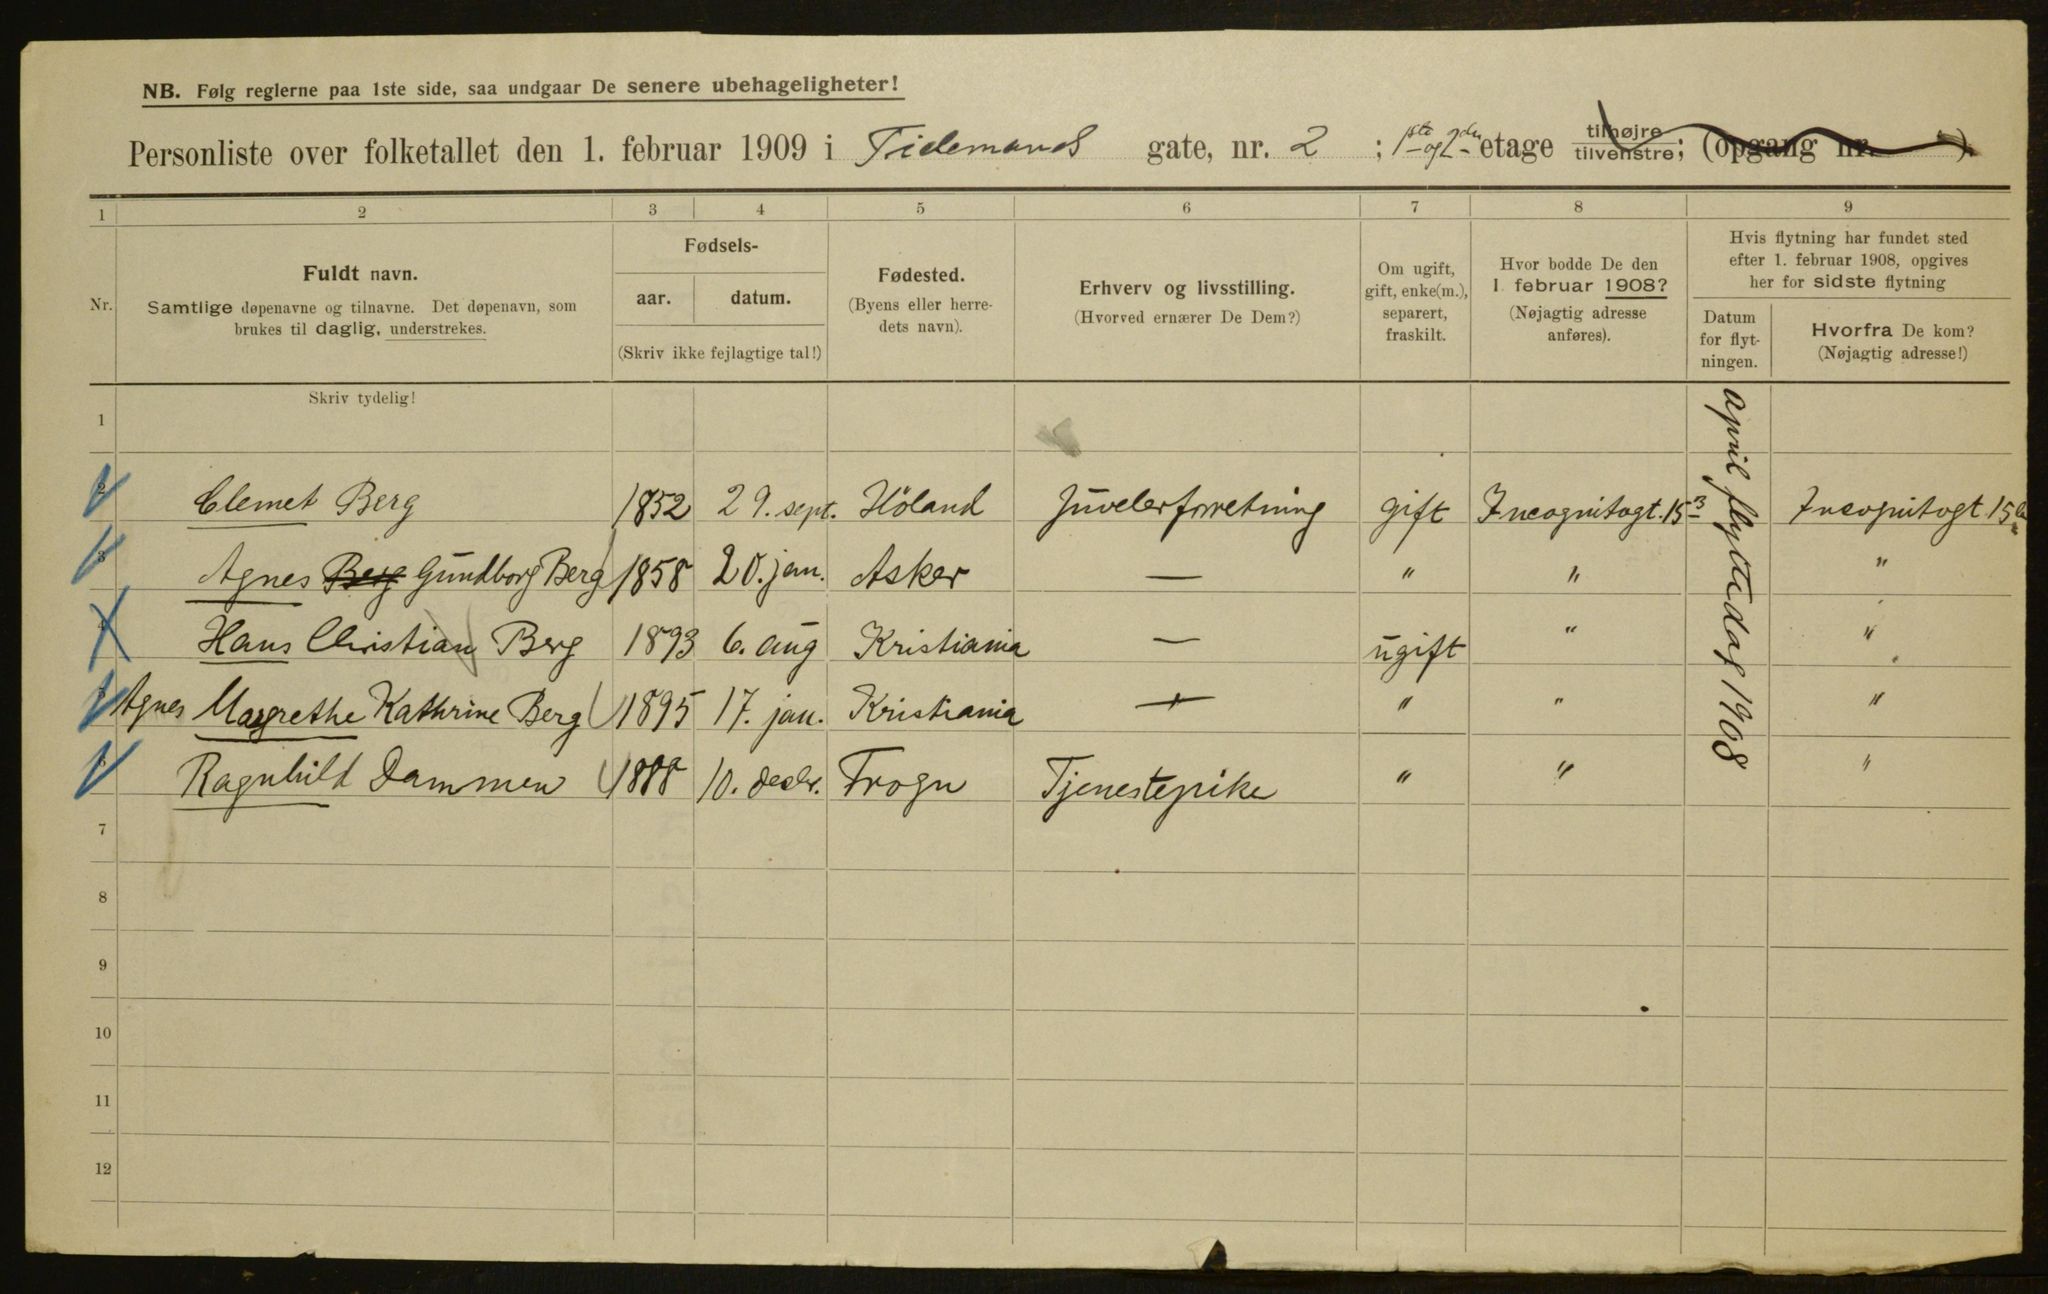 NB. Følg reglerne paa 1ste side, saa undgaar De senere ubehageligheter!
Personliste over folketallet den 1. februar 1909 i Tidemands gate, nr. 2 ; 1ste og 2den etage tilhøjre tilvenstre; (opgang nr. ).
1 2 3 4 5 6 7 8 9
Nr.
Fuldt navn.
Samtlige døpenavne og tilnavne. Det døpenavn, som
brukes til daglig, understrekes.
Fødsels-
aar. datum.
(Skriv ikke fejlagtige tal!)
Fødested.
(Byens eller herre-
dets navn).
Erhverv og livsstilling.
(Hvorved ernærer De Dem?)
Om ugift,
gift, enke(m.),
separert,
fraskilt.
Hvor bodde De den
1. februar 1908?
(Nøjagtig adresse
anføres).
Hvis flytning har fundet sted
efter 1. februar 1908, opgives
her for sidste flytning
Datum
for flyt-
ningen.
Hvorfra De kom?
(Nøjagtig adresse!)
Skriv tydelig!
1
2 Clemet Berg 1852 29. sept. Höland Juvelerforretning gift Incognitogt. 15 3 Incognitogt 15
3 Agnes Berg Gundborg Berg 1858 20. jan. Asker — " " "
4 Hans Christian Berg 1893 6. aug Kristiania — ugift " "
5 Agnes Margrethe Kathrine Berg 1895 17. jan. Kristiania — " " "
6 Ragnhild Dammen 1888 10. desbr. Frogn Tjenestepike " " "
april flyttedag 1908
7
8
9
10
11
12